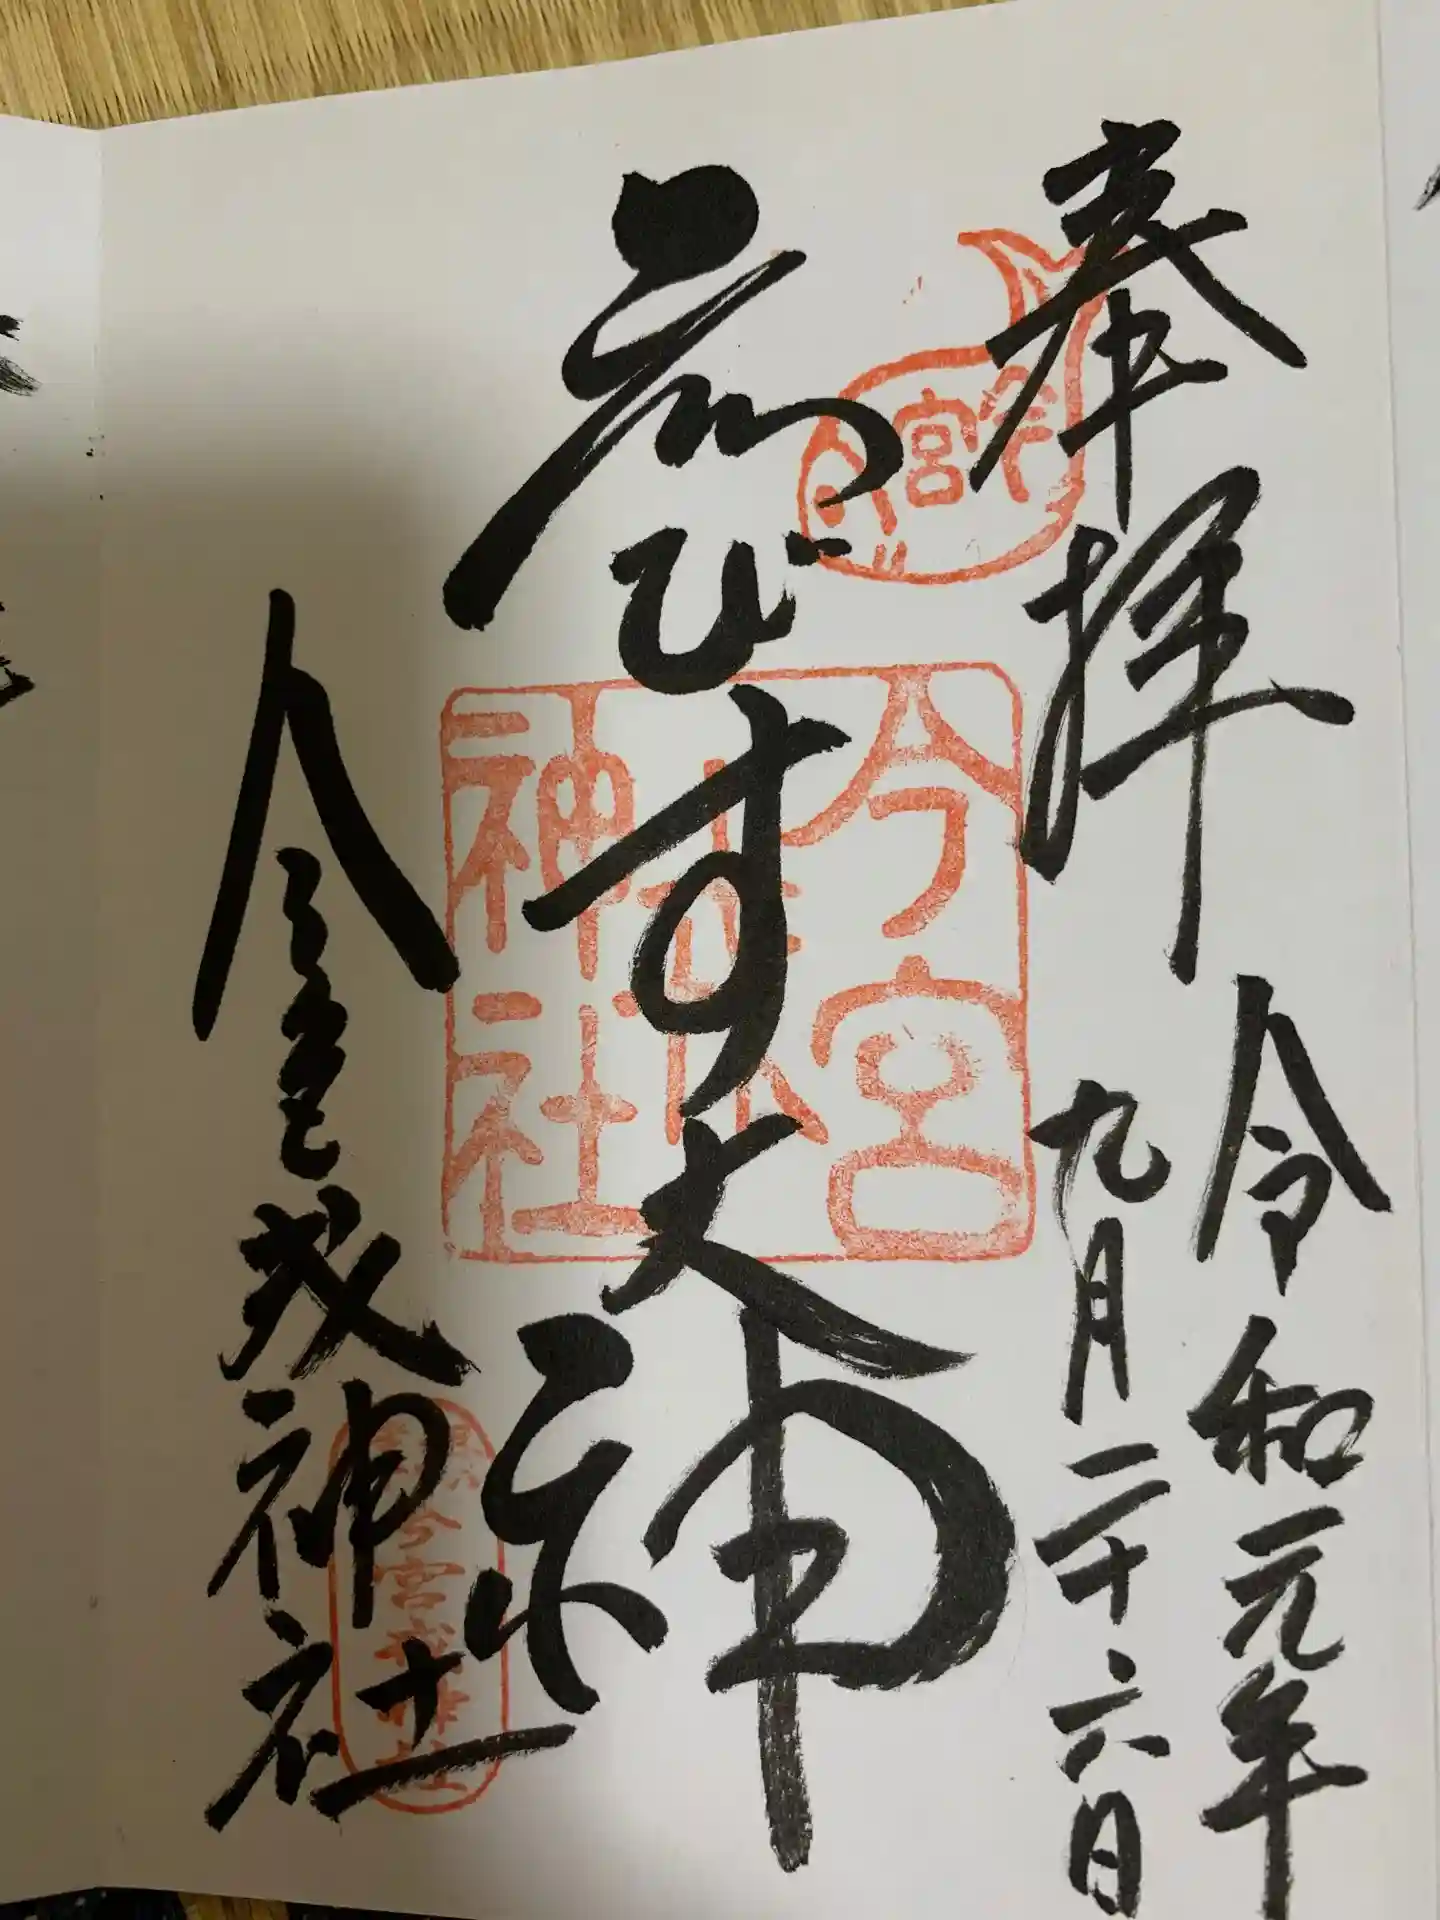 奉拝
令和元年
九月二十六日
今宮
ゑびす大神
今宮戎神社
今宮戎神社
今宮戎神社